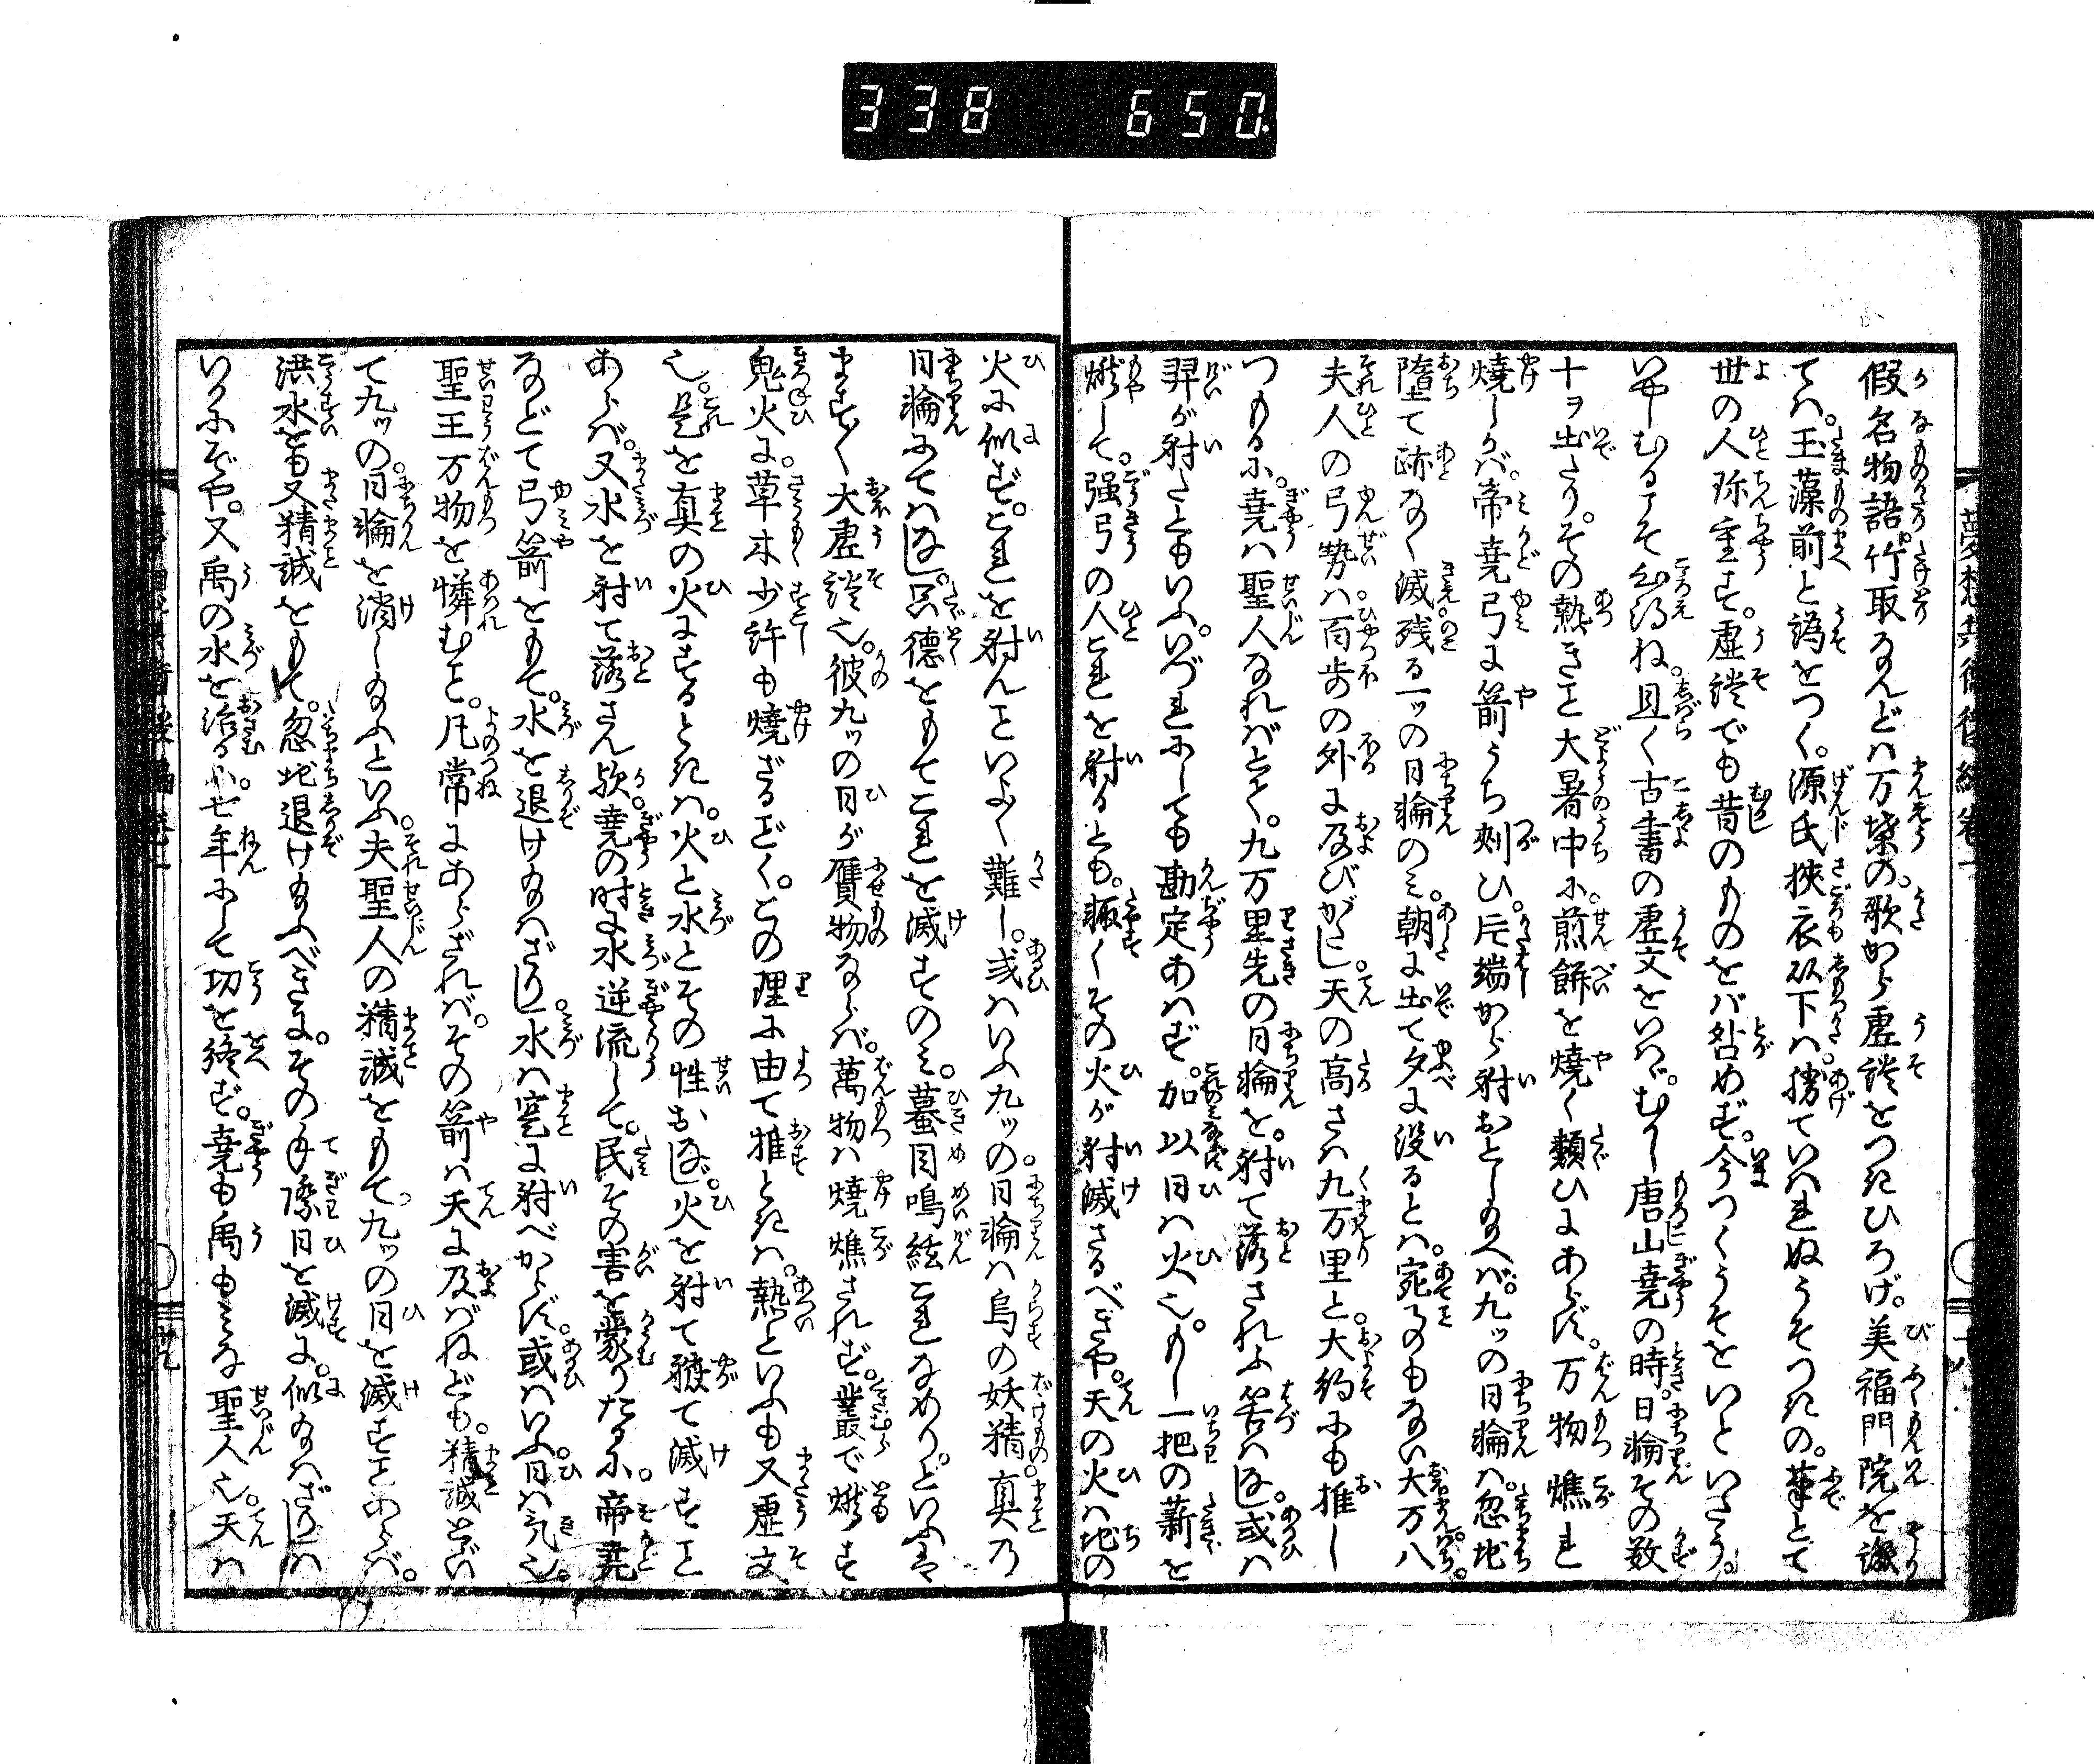 338 650
假名物語。竹取なんどは万葉の。歌から虚談をつきひろげ。美福門院を譏
ては。玉藻前と譌をつく。源氏狹衣以下は。勝ていはれぬうそつきの。筆とて
世の人珎重す。虚談でも昔のものをば咎めず。今つくうそをいといたう。
いやしむるこそ心得ね。且く古書の虚文をいはゞ。むかし唐山堯の時。日輪その数
十ヲ出たり。その熱きこと大暑中に。煎餅を燒く類ひにあらず。万物燋れ
燒しかば。帝堯弓に箭うち刾ひ。片端から射おとし給へば。九ッの日輪は。忽地
墮て跡なく滅残る一ッの日輪のミ。朝に出て夕に没るとは。宛ものもない大万八
夫人の弓勢は。百歩の外に及びがたし。天の高さは九万里と。大約にも推し
つもるに。堯は聖人なればとて。九万里先の日輪を。射て落されふ筈はなし。或は
羿が射たともいふ。いづれにしても勘定あはず。加以日は火也。もし一把の薪を
燃して。强弓の人これを射るとも。輙くその火が射滅さるべきや。天の火は地の
火に似ず。これを射んこといよ〱難し。或はいふ九ッの。日輪は烏の妖精。真の
日輪にてはなし。只德をもてこれを滅すのミ。蟇目鳴絃これなめり。といふは
ます〱大虚談也。彼九ッの日が贋物ならば。萬物は燒燋されず。叢で燃す
鬼火に。草木少許も燒ざるごとく。この理に由て推ときは。熱といふも又虚文
也。是を真の火にするときは。火と水とその性おなじ。火を射て籏て滅すこと
あらば。又水を射て落さん歟。堯の时に水逆流して。民その害を蒙りたるに。帝堯
などて弓箭をもて。水を退け給はざりし。水は寔に射べからず。或はいふ。日は気也。
聖王万物を憐むこと。凡常にあらざれば。その箭は天に及ばねども。精誠をい
て九ッの。日輪を消し給ふといふ。夫聖人の精誠をもて。九ッの日を滅すことあらば。
洪水をも又精誠をもて。忽地退け給ふべきに。その手際日を滅に。似給はざりしは
いかにぞや。又禹の水を治るに。七年にして功を終ず。堯も禹もミな聖人也。天は